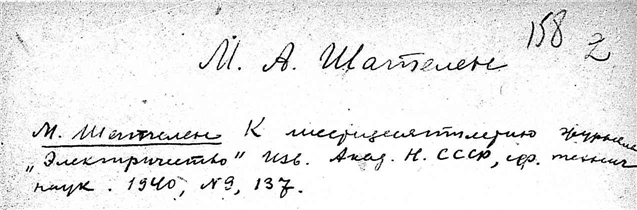 158 2
М. А. Шателен
М. Шателен К шестидесятилетию журнала
„Электричество" Изв. Акад. Н. СССР, сер. технич
наук. 1940, №9, 137.